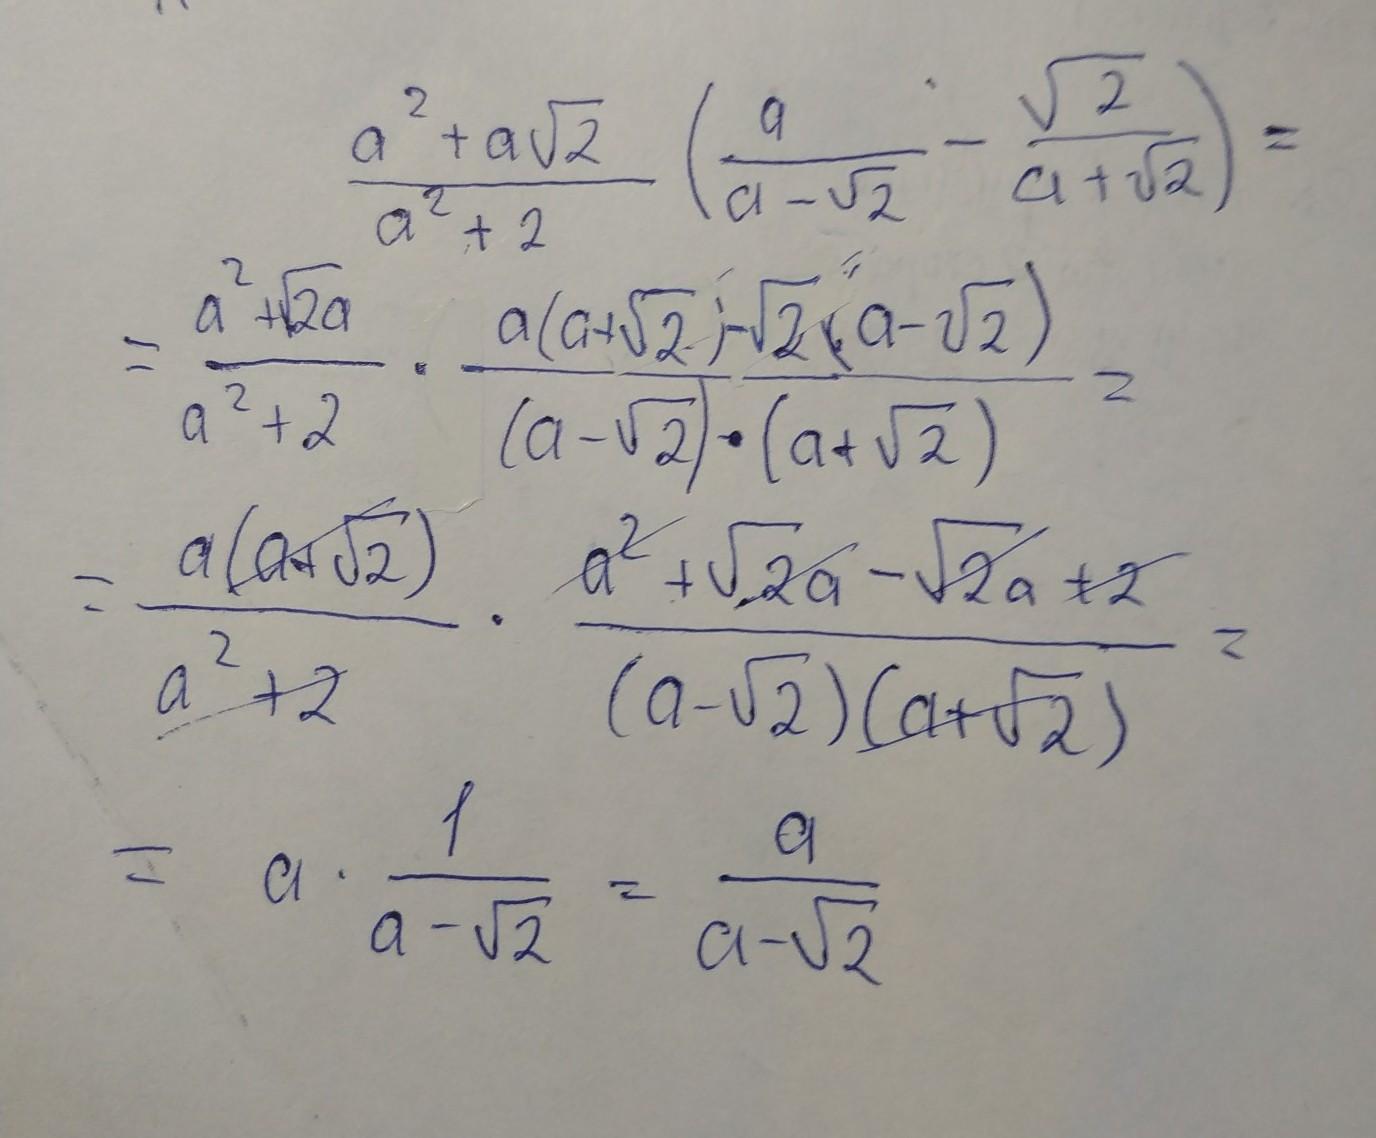 (a² + a√2)/(a² + 2) (a/(a - √2) - √2/(a + √2)) =
= (a² + √2a)/(a² + 2) · (a(a + √2) - √2(a - √2))/((a - √2) · (a + √2)) =
= a(a + √2)/(a² + 2) · (a² + √2a - √2a + 2)/((a - √2)(a + √2)) =
= a · 1/(a - √2) = a/(a - √2)